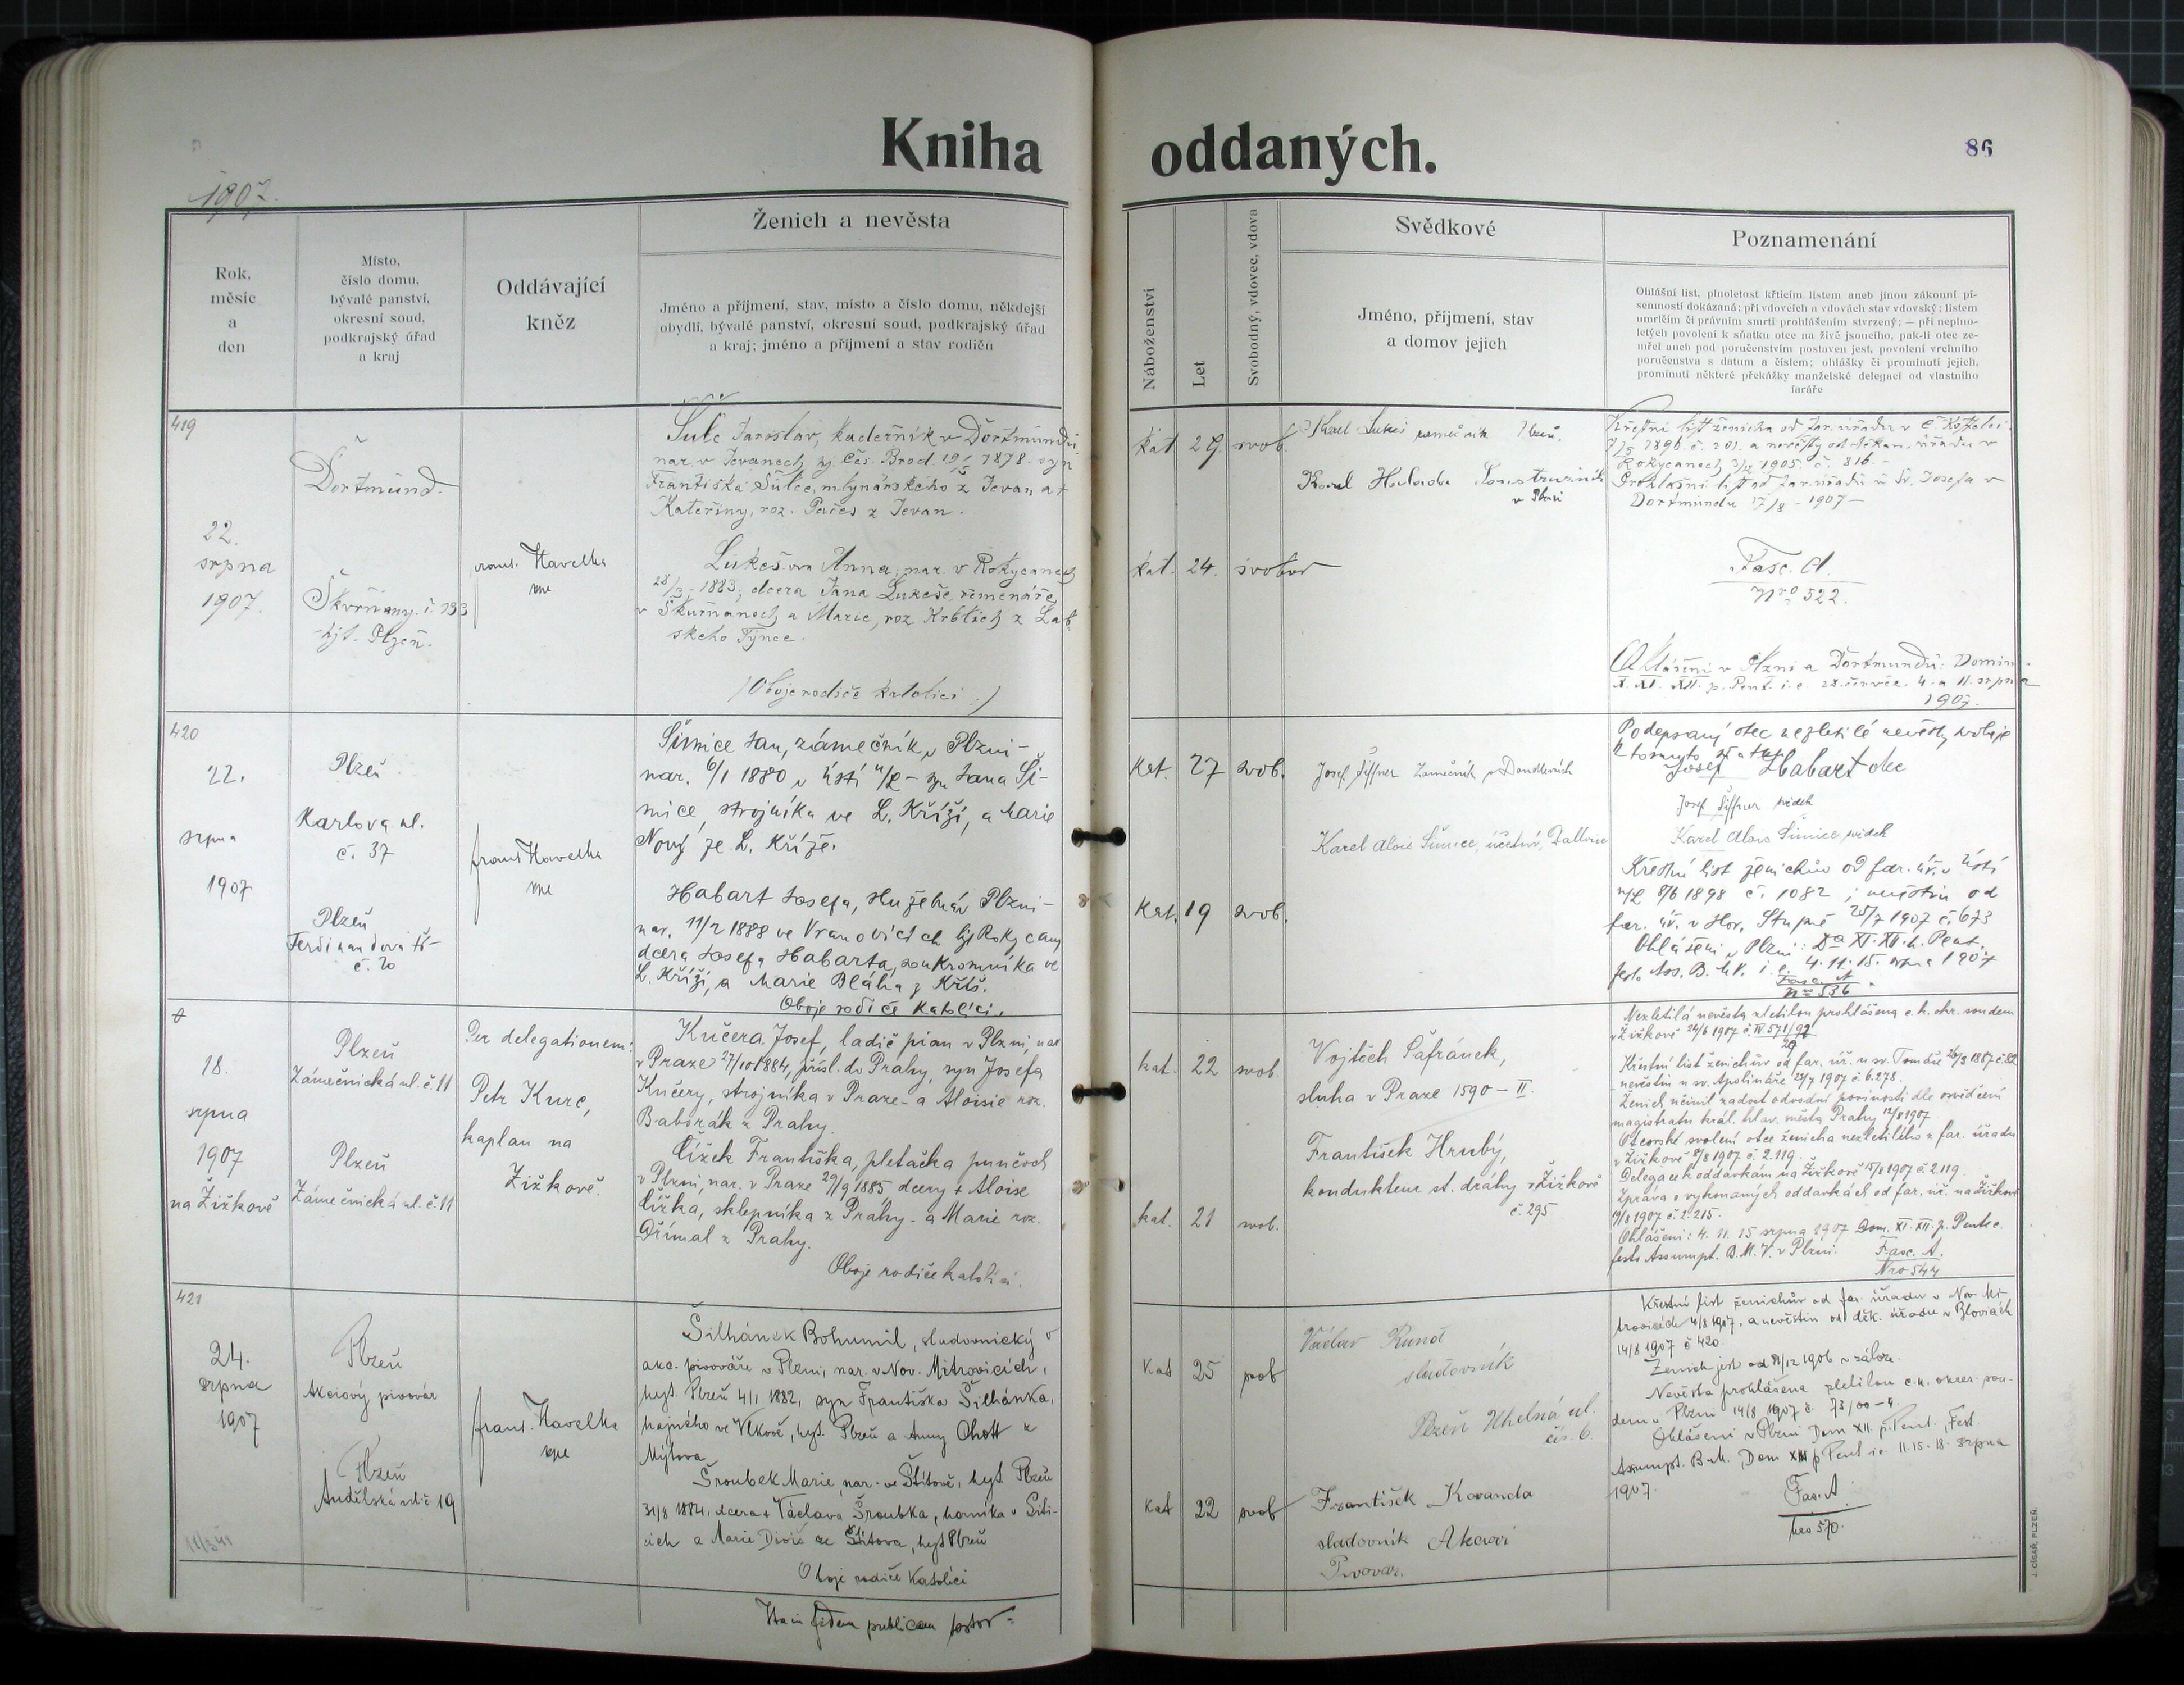 Kniha
oddaných.
86
1907.
Rok,
měsíc
a
den
Místo,
číslo domu,
bývalé panství,
okresní soud,
podkrajský úřad
a kraj
Oddávající
kněz
Ženich a nevěsta
Jméno a příjmení, stav, místo a číslo domu, někdejší
obydlí, bývalé panství, okresní soud, podkrajský úřad
a kraj; jméno a příjmení a stav rodičů
Náboženství
Let
Svobodný, vdovec, vdova
Svědkové
Jméno, příjmení, stav
a domov jejich
Poznamenání
Ohlášní list, plnoletost křticím listem aneb jinou zákonní pí-
semností dokázaná; při vdovcích a vdovách stav vdovský; listem
umrlčím či právním smrti prohlášením stvrzený; — při neplno-
letých povolení k sňatku otce na živě jsoucího, pak-li otec ze-
mřel aneb pod poručenstvím postaven jest, povolení vrchního
poručenstva s datum a číslem; ohlášky či prominutí jejich,
prominutí některé překážky manželské delegací od vlastního
faráře
419
22.
srpna
1907.
Dortmund
Škvrňany. č. 293
hjt. Plzeň.
frant. Havelka
Šulc Jaroslav, kadeřník v Dortmundu
nar. v Jevanech hj. Čes. Brod 19/5 1878. syn
Františka Šulce, mlynářského z Jevan a +
Kateřiny, roz. Pačes z Jevan.
Lukešova Anna, nar. v Rokycanech
28/3 1883, dcera Jana Lukeše, řemenáře
v Škvrňanech a Marie, roz. z Lab-
ského Týnce.
(Oboje rodiče katolíci.)
kat 29. svob.
kat. 24. svobod
Karel Lukeš
Karel
v Plzni
Křestní list ženicha od far. úřadu v Č. Kostelci
7/5 1896. č. 201. a nevěsty od děkan. úřadu v
Rokycanech 1905. č. 816.
Prohlašní list od far. úřadu u Sv. Josefa v
Dortmundu 17/8 - 1907 -
Fasc. A.
Nro 522.
Ohlášení v Plzni a Dortmundu: Domin.
X. XI. XII. p. Pent. i. e. 28. července. 4. a 11. srpna
1907.
420
22.
srpna
1907
Plzeň
Karlova ul.
č. 37
Plzeň
Ferdinandova tř-
č. 20
frant Havelka
Šimice Jan, zámečník v Plzni -
nar. 6/1 1880 v Ústí n/L - syn Jana Ši-
mice, strojníka ve L. Kříži, a Marie
Nový ze L. Kříže.
Habart Josefa, služebná v Plzni -
nar. 11/2 1888 ve Vranovicích hjt Rokycany
dcera Josefa Habarta, soukromníka ve
L. Kříži, a Marie Bláha z Kříš.
Oboje rodiče katolíci.
Kat. 27 svob.
Kat. 19 svob.
Josef Šiffner Zámečník v Doudlevcích
Karel Alois Šimice, účetní,
Podepsaný otec nezletilé nevěsty svoluje
k tomuto sňatku
Josef Habart otec
Josef Šiffner svědek
Karel Alois Šimice svědek
Křestní list ženichův od far. úř. v Ústí
n/L 8/6 1898 č. 1082; nevěstin od
far. úř. v Hor. Stupně 25/7 1907 č. 673
Ohlášení v Plzni: Da XI. XII. p. Pent.
festo Ass. B. M. V. i. e. 4. 11. 15. srpna 1907
Fasc. A
No 536
18.
srpna
1907
na Žižkově
Plzeň
Zámečnická ul. č. 11
Plzeň
Zámečnická ul. č. 11
Per delegationem:
Petr Kurc,
kaplan na
Žižkově.
Kučera Josef, ladič pian v Plzni, nar.
v Praze 27/10 1884, přísl. do Prahy, syn Josefa
Kučery, strojníka v Praze - a Aloisie roz.
Baborák z Prahy.
Čížek Františka, pletačka punčoch
v Plzni, nar. v Praze 29/9 1885 dcery + Aloise
Čížka, sklepníka z Prahy - a Marie roz.
Dřímal z Prahy.
Oboje rodiče katolíci.
kat. 22 svob.
kat. 21 svob.
Vojtěch Šafránek,
sluha v Praze 1590 - II.
František Hrubý,
kondukteur st. dráhy v Žižkově
č. 295
Nezletilá nevěsta zletilou prohlášena c. k. okr. soudem
v Žižkově 24/6 1907 č. IV 571/99
Křestní list ženichův od far. úř. u sv. Tomáše 26/3 1887 č. 82
nevěstin u sv. Apolináře 24/7 1907 č. 6.278.
Ženich učinil zadost odvodní povinnosti dle osvědčení
magistrátu král. hlav. města Prahy 12/8 1907
Otcovské svolení otce ženicha nezletilého z far. úřadu
v Žižkově 8/8 1907 č. 2.119.
Delegace k oddavkám na Žižkově 15/8 1907 č. 2119.
Zpráva o vykonaných oddavkách od far. úř. na Žižkově
19/8 1907 č. 2.215.
Ohlášení: 4. 11. 15 srpna 1907 Dom. XI. XII. p. Pentec.
festo Assumpt. B. M. V. v Plzni.
Fasc. A.
Nro 544
421
24.
srpna
1907
Plzeň
Akciový pivovár
Plzeň
Andělská ul. č. 19
frant. Havelka
Šilhánek Bohumil, sladovnický v
akc. pivováře v Plzni, nar. v Nov. Mitrovicích,
hejt. Plzeň 4/1 1882, syn Františka Šilhánka,
hajného ve Vlkově, hejt. Plzeň a Anny Chott z
Mýtova
Šroubek Marie, nar. ve Štítově, hejt Plzeň
31/8 1884, dcera + Václava Šroubka, horníka v Síti-
cích a Marie Diviš ze Štítova, hejt Plzeň
Oboje rodiče Katolíci
Kat 25 svob
Kat 22 svob
Václav
sladovník
Plzeň Uhelná ul.
čís. 6.
František Kovanda
sladovník Akciový
Pivovar.
Křestní list ženichův od far. úřadu v Nov. Mi-
trovicích 4/8 1907, a nevěstin od děk. úřadu v Blovicích
14/8 1907 č 420.
Ženich jest od 31/12 1906 v záloze.
Nevěsta prohlášena zletilou c. k. okres. sou-
dem v Plzni 14/8 1907 č.
Ohlášeni v Plzni Dom XII. p. Pent., Fest.
Assumpt. B. M., Dom XIII p Pent i.e. 11. 15. 18. srpna
1907.
Fasc. A
Nro 570.
fidem publicam
J. CÍSAŘ, PLZEŇ